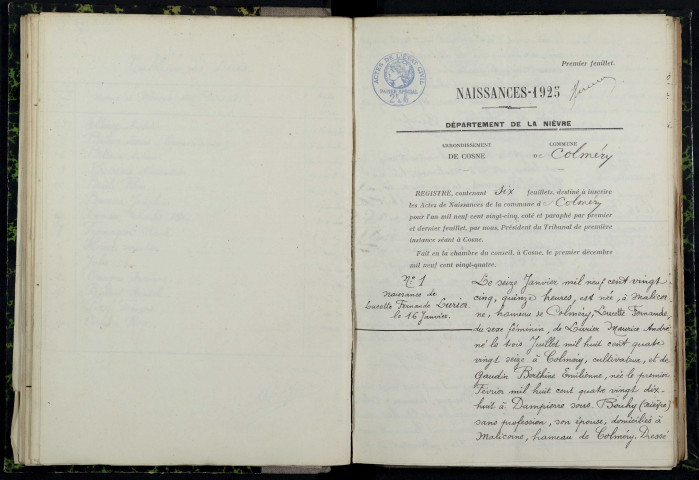 Premier feuillet.
ACTES DE L'ÉTAT CIVIL
PAPIER SPÉCIAL
NAISSANCES-1925
DÉPARTEMENT DE LA NIÈVRE
ARRONDISSEMENT
DE COSNE
COMMUNE
DE Colméry
REGISTRE, contenant Six feuillets, destiné à inscrire
les Actes de Naissances de la commune d Colméry
pour l'an mil neuf cent vingt-cinq, coté et paraphé par premier
et dernier feuillet, par nous, Président du Tribunal de première
instance séant à Cosne.
Fait en la chambre du conseil, à Cosne, le premier décembre
mil neuf cent vingt-quatre.
N° 1
Naissance de
Lucette Fernande
le 16 Janvier.
Le seize Janvier mil neuf cent vingt
cinq, quinze heures, est née, à Malicor-
ne, hameau de Colméry, Lucette Fernande,
du sexe féminin, de Maurice André
né le trois Juillet mil huit cent quatre
vingt seize à Colméry, cultivateur, et de
Gaudin Berthine Emilienne, née le premier
Février mil huit cent quatre vingt dix-
huit à Dampierre sous Bouhy (Nièvre)
sans profession, son épouse, domiciliés à
Malicorne, hameau de Colméry. Dressé